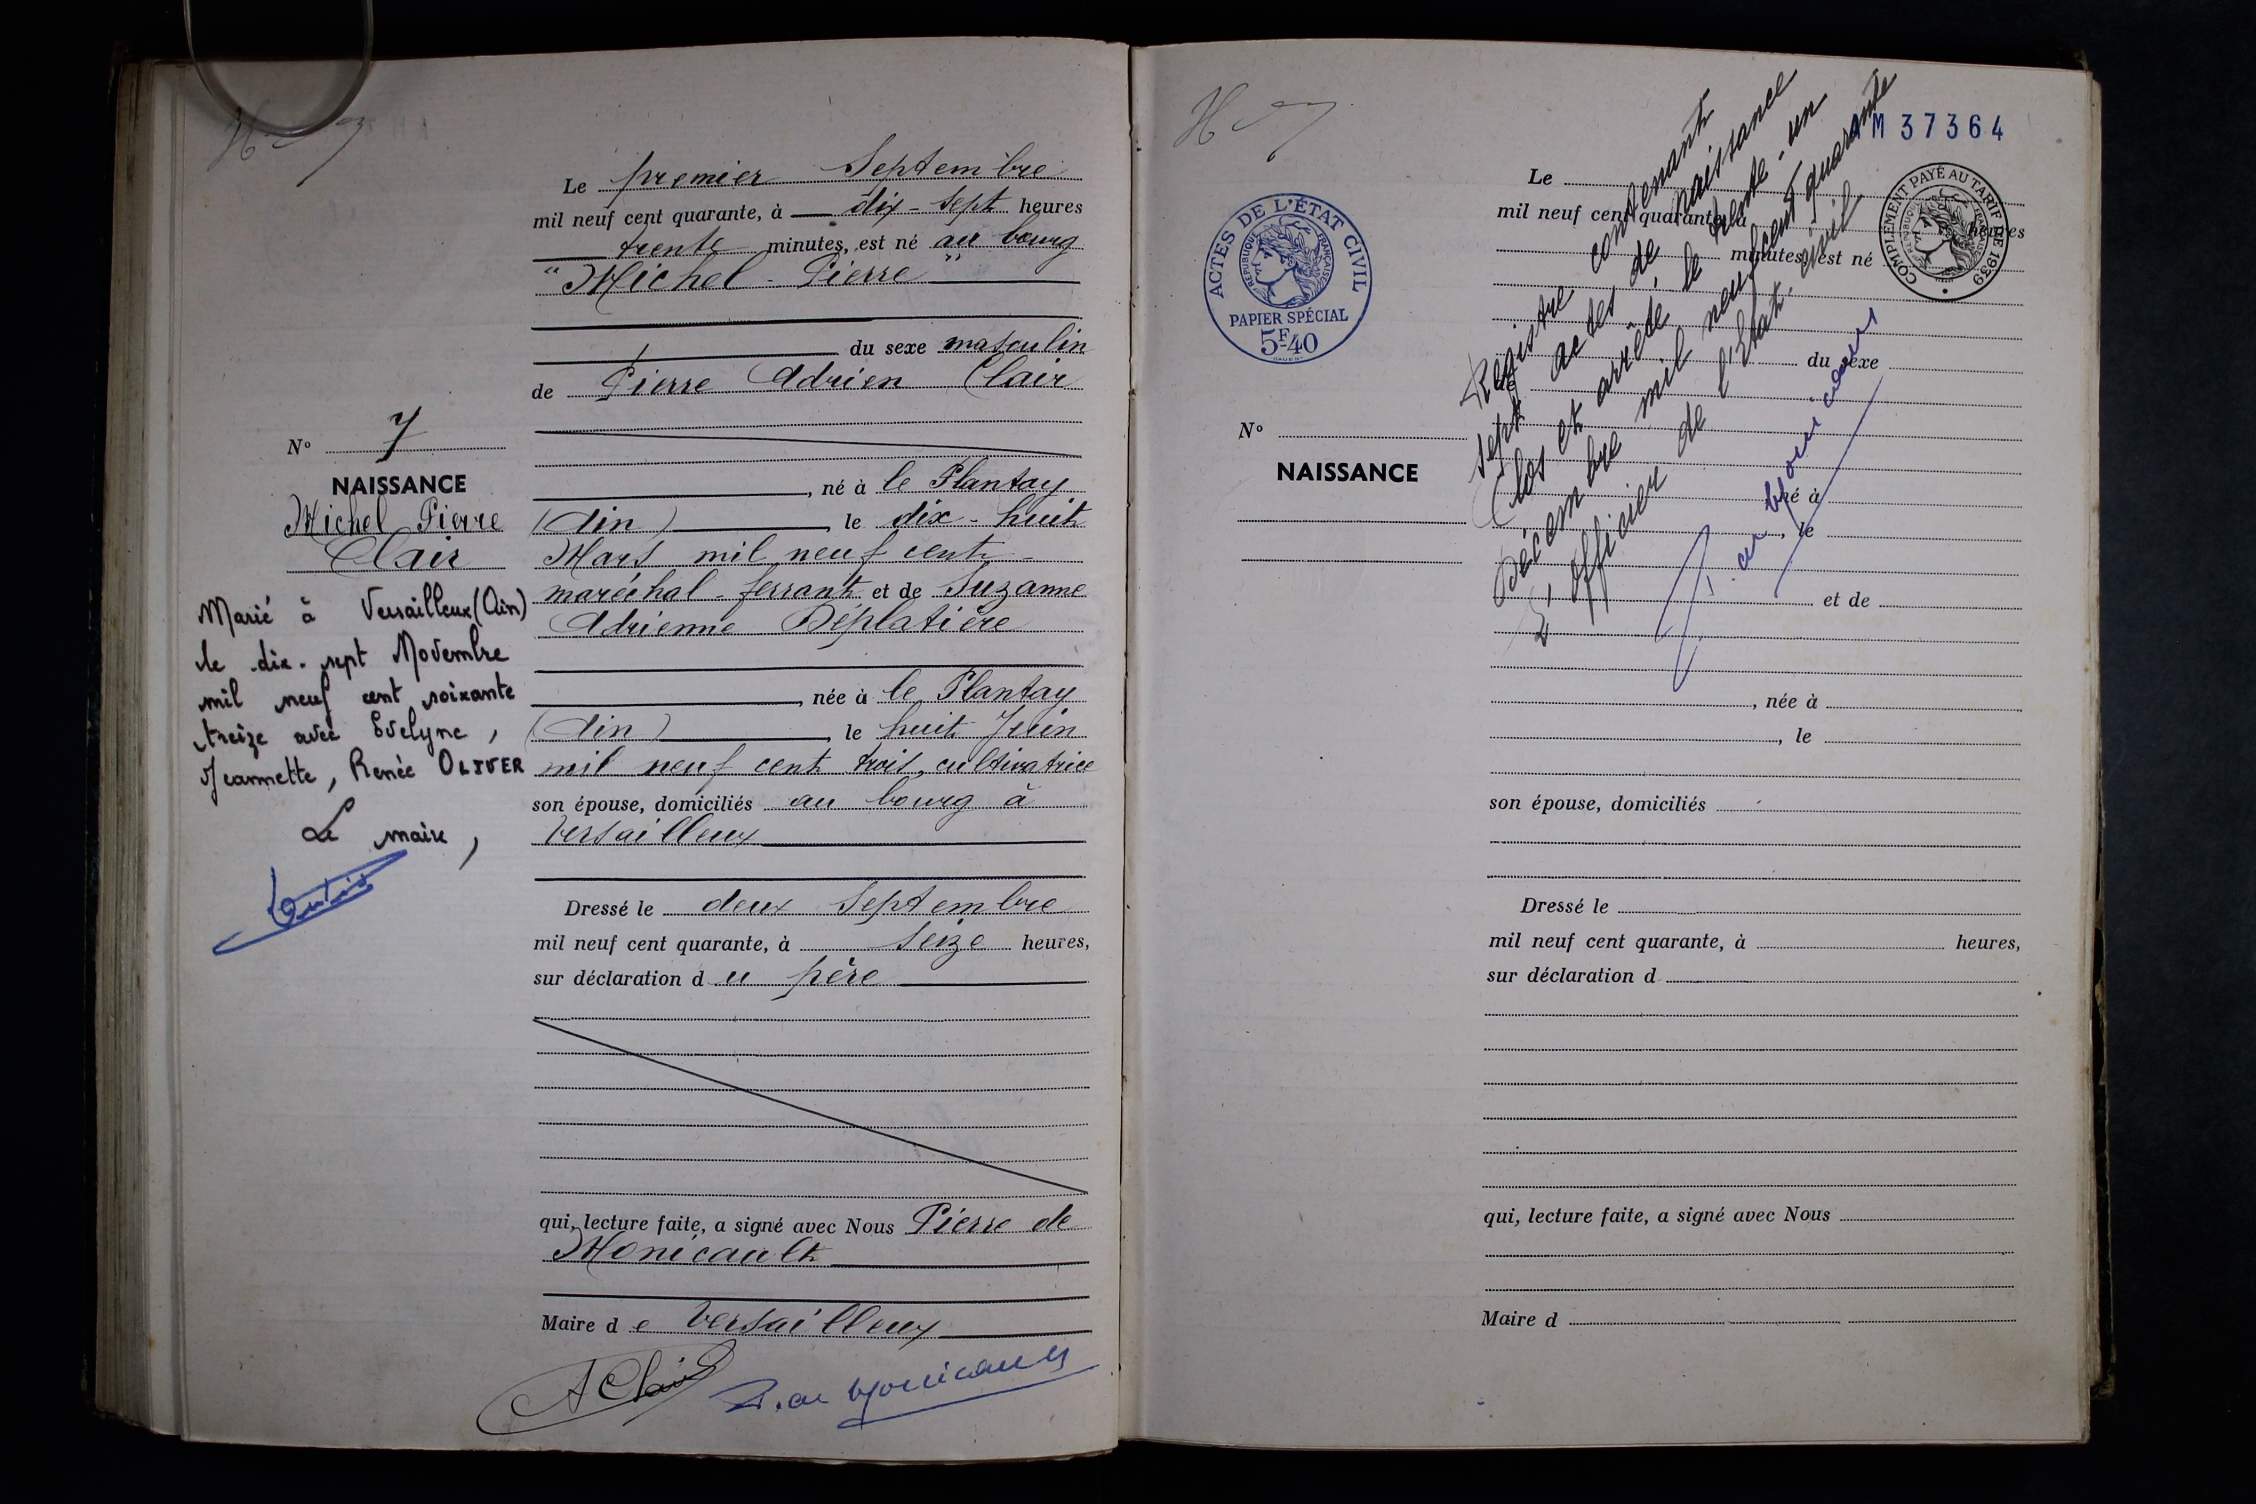 Le premier Septembre
mil neuf cent quarante, à dix-sept heures
trente minutes, est né au bourg
"Michel Pierre"
du sexe masculin
de Pierre Adrien Clair
, né à le Plantay
(Ain) le dix-huit
Mars mil neuf cent
maréchal-ferrant et de Suzanne
Adrienne Déplatière
, née à le Plantay
(Ain) , le huit Juin
mil neuf cent trois, cultivatrice
son épouse, domiciliés au bourg à
Versailleux
Dressé le deux Septembre
mil neuf cent quarante, à seize heures,
sur déclaration du père
qui, lecture faite, a signé avec Nous Pierre de
Monicault
Maire de Versailleux
A Clair P. de Monicault
N° 7
NAISSANCE
Michel Pierre
Clair
Marié à Versailleux (Ain)
le dix-sept Novembre
mil neuf cent soixante
treize avec Evelyne,
Jeannette, Renée OLIVER
Le maire,
AM 37364
ACTES DE L'ÉTAT CIVIL
RÉPUBLIQUE FRANÇAISE
PAPIER SPÉCIAL
5F40
COMPLÉMENT PAYÉ AU TARIF DE 1939
RÉPUBLIQUE FRANÇAISE
Registre contenant
sept actes de naissance
Clos et arrêté le trente-un
Décembre mil neuf cent quarante
L'officier de l'Etat-civil
P. de Monicault
N°
NAISSANCE
Le
mil neuf cent quarante, à heures
minutes, est né
du sexe
de
, né à
, le
et de
, née à
, le
son épouse, domiciliés
Dressé le
mil neuf cent quarante, à heures,
sur déclaration d
qui, lecture faite, a signé avec Nous
Maire d